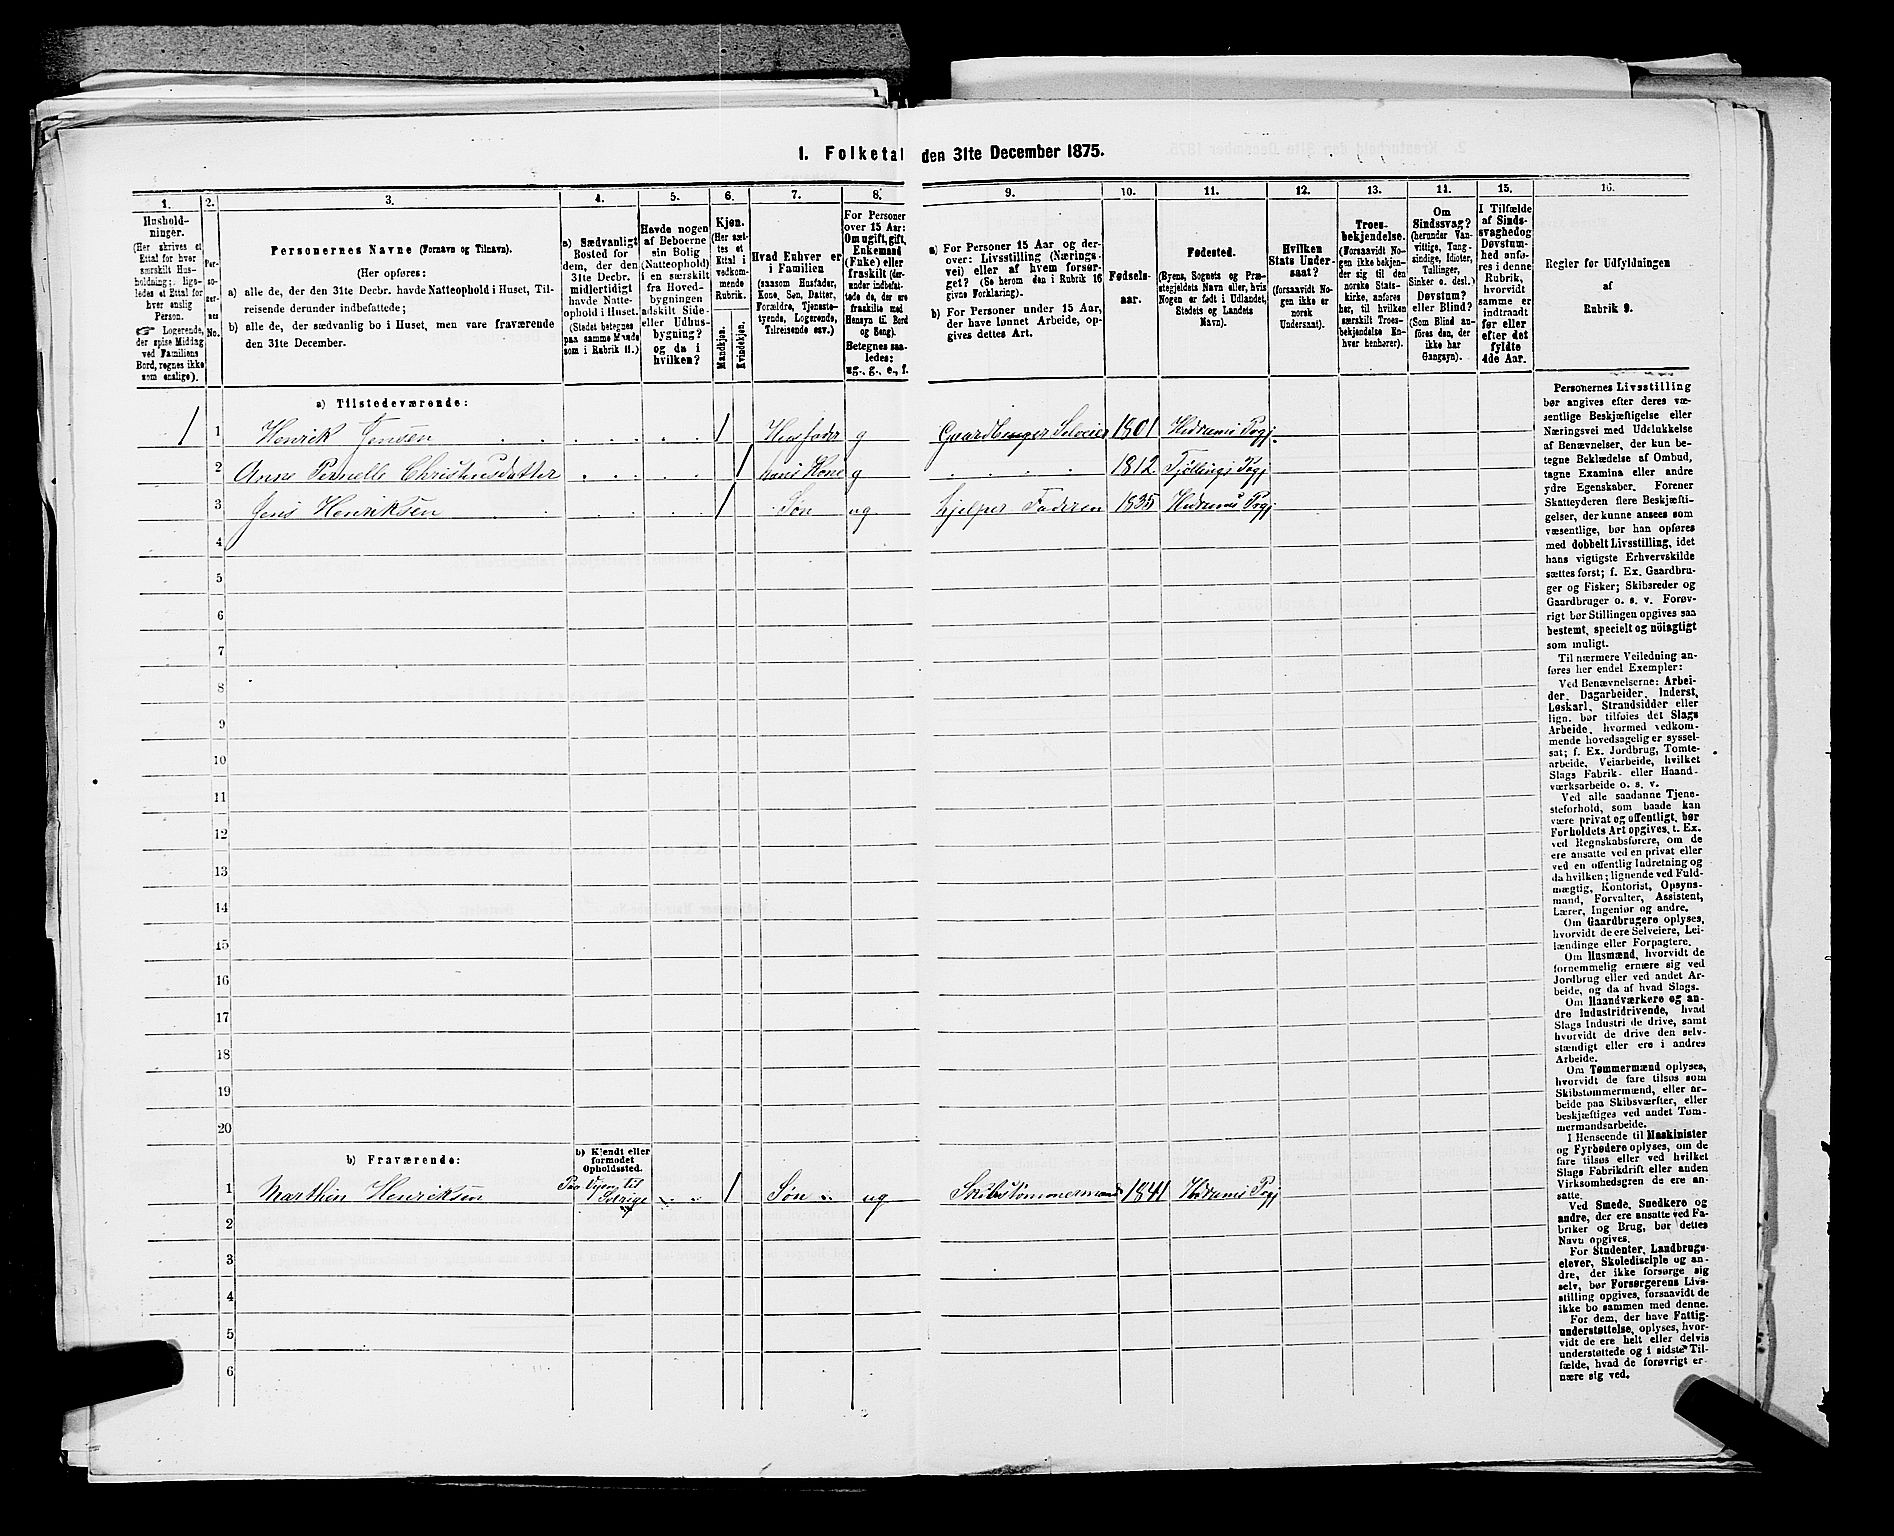 1. Folketal den 31te December 1875.
1.
2.
3.
4.
5.
6.
7.
8.
9.
10.
11.
12.
13.
14.
15.
16.
Hushold-
ninger.
(Her skrives et
Ettal for hver
særskilt Hus-
holdning; lige-
ledes et Ettal for
hver enslig
Person.
☞ Logerende,
der spise Middag
ved Familiens
Bord, regnes ikke
som enslige).
Per-
so-
ner-
nes
No.
Personernes Navne (Fornavn og Tilnavn).
(Her opføres:
a) alle de, der den 31te Decbr. havde Natteophold i Huset, Til-
reisende derunder indbefattede;
b) alle de, der sædvanlig bo i Huset, men vare fraværende
den 31te December.
a) Sædvanligt
Bosted for
dem, der den
31te Decbr.
midlertidigt
havde Natte-
ophold i Huset.
(Stedet betegnes
paa samme Maade
som i Rubrik 11.)
Havde nogen
af Beboerne
sin Bolig
(Natteophold)
i en særskilt
fra Hoved-
bygningen
adskilt Side-
eller Udhus-
bygning?
og da i
hvilken?
Kjøn.
(Her sæt-
tes et
Ettal i
vedkom-
mende
Rubrik.
Mandkjøn.
Kvindekjøn.
Hvad Enhver er
i Familien
(saasom Husfader,
Kone, Søn, Datter,
Forældre, Tjeneste-
tyende, Logerende,
Tilreisende osv.)
For Personer
over 15 Aar:
Om ugift, gift,
Enkemand
(Enke) eller
fraskilt (der-
under indbefat-
tede de, der ere
fraskilte med
Hensyn til Bord
og Seng).
Betegnes saa-
ledes:
ug., g., e., f.
a) For Personer 15 Aar og der-
over: Livsstilling (Nærings-
vei) eller af hvem forsør-
get? (Se herom den i Rubrik 16
givne Forklaring).
b) For Personer under 15 Aar,
der have lønnet Arbeide, op-
gives dettes Art.
Fødsels-
aar.
Fødested.
(Byens, Sognets og Præ-
stegjeldets Navn eller, hvis
Nogen er født i Udlandet,
Stedets og Landets
Navn).
Hvilken
Stats Under-
saat?
(forsaavidt No-
gen ikke er
norsk
Undersaat).
Troes-
bekjendelse.
(Forsaavidt No-
gen ikke bekjen-
der sig til den
norske Stats-
kirke, anføres
her, til hvilken
særskilt Troes-
bekjendelse En-
hver henhører).
Om
Sindssvag?
(herunder Van-
vittige, Tung-
sindige, Idioter,
Tullinger,
Sinker o. desl.)
Døvstum?
eller Blind?
(Som Blind an-
føres den, der
ikke har
Gangsyn).
I Tilfælde
af Sinds-
svaghed og
Døvstum-
hed anfø-
res i denne
Rubrik,
hvorvidt
samme er
indtraadt
før eller
efter det
fyldte
4de Aar.
Regler for Udfyldningen
af
Rubrik 9.
a) Tilstedeværende:
1 1 Henrik Jensen 1 Husfader g Gaardbruger Selveier 1801 Hedrums Prgj.
2 Anne Pernelle Christensdatter 1 hans Kone g 1812 Tjøllings Prgj
3 Jens Henriksen 1 Søn ug hjelper Faderen 1835 Hedrums Prgj
4
5
6
7
8
9
10
11
12
13
14
15
16
17
18
19
20
b) Fraværende:
b) Kjendt eller
formodet
Opholdssted.
1 Marthin Henriksen Paa Veien til Sverige 1 Søn ug Skibstømmermand 1841 Hedrums Prgj
2
3
4
5
6
Personernes Livsstilling
bør angives efter deres væ-
sentlige Beskjæftigelse eller
Næringsvei med Udelukkelse
af Benævnelser, der kun be-
tegne Beklædelse af Ombud,
tagne Examina eller andre
ydre Egenskaber. Forener
Skatteyderen flere Beskjæfti-
gelser, der kunne ansees som
væsentlige, bør han opføres
med dobbelt Livsstilling, idet
hans vigtigste Erhvervskilde
sættes først; f. Ex. Gaardbru-
ger og Fisker; Skibsreder og
Gaardbruger o. s. v. Forøv-
rigt bør Stillingen opgives saa
bestemt, specielt og nöiagtigt
som muligt.
Til nærmere Veiledning an-
føres her endel Exempler:
Ved Benævnelserne: Arbei-
der, Dagarbeider, Inderst,
Løskarl, Strandsidder eller
lign. bør tilføies det Slags
Arbeide, hvormed vedkom-
mende hovedsagelig er syssel-
sat; f. Ex. Jordbrug, Tomte-
arbeide, Veiarbeide, hvilket
Slags Fabrik- eller Haand-
værksarbeide o. s. v.
Ved alle saadanne Tjene-
steforhold, som baade kan
være privat og offentligt, bør
Forholdets Art opgives, t. Ex.
ved Regnskabsførere, om de
ere ansatte ved en privat eller
ved en offentlig Indretning og
da hvilken; lignende ved Fuld-
mægtig, Kontorist, Opsyns-
mand, Forvalter, Assistent,
Lærer, Ingeniør og andre.
Om Gaardbrugere oplyses,
hvorvidt de ere Selveiere, Lei-
lændinge eller Forpagtere.
Om Husmænd, hvorvidt de
fornemmelig ernære sig ved
Jordbrug eller ved andet Ar-
beide, og da af hvad Slags.
Om Haandværkere og an-
dre Industridrivende, hvad
Slags Industri de drive, samt
hvorvidt de drive den selv-
stændigt eller ere i andres
Arbeide.
Om Tømmermænd oplyses,
hvorvidt de fare tilsøs som
Skibstømmermænd, eller ar-
beide paa Skibsværfter, eller
beskjæftiges ved andet Tøm-
mermandsarbeide.
I Henseende til Maskinister
og Fyrbødere oplyses, om de
fare tilsøs eller ved hvilket
Slags Fabrikdrift eller anden
Virksomhedsgren de ere an-
satte.
Ved Smede, Snedkere og
andre, der ere ansatte ved Fa-
briker og Brug, bør dettes
Navn opgives.
For Studenter, Landbrugs-
elever, Skoledisciple og an-
dre, der ikke forsørge sig
selv, bør Forsørgerens Livs-
stilling opgives, forsaavidt de
ikke bo sammen med denne.
For dem, der have Fattig-
understøttelse, oplyses, hvor-
vidt de ere helt eller delvis
understøttede og i sidste Til-
fælde, hvad de forøvrigt er-
nære sig ved.